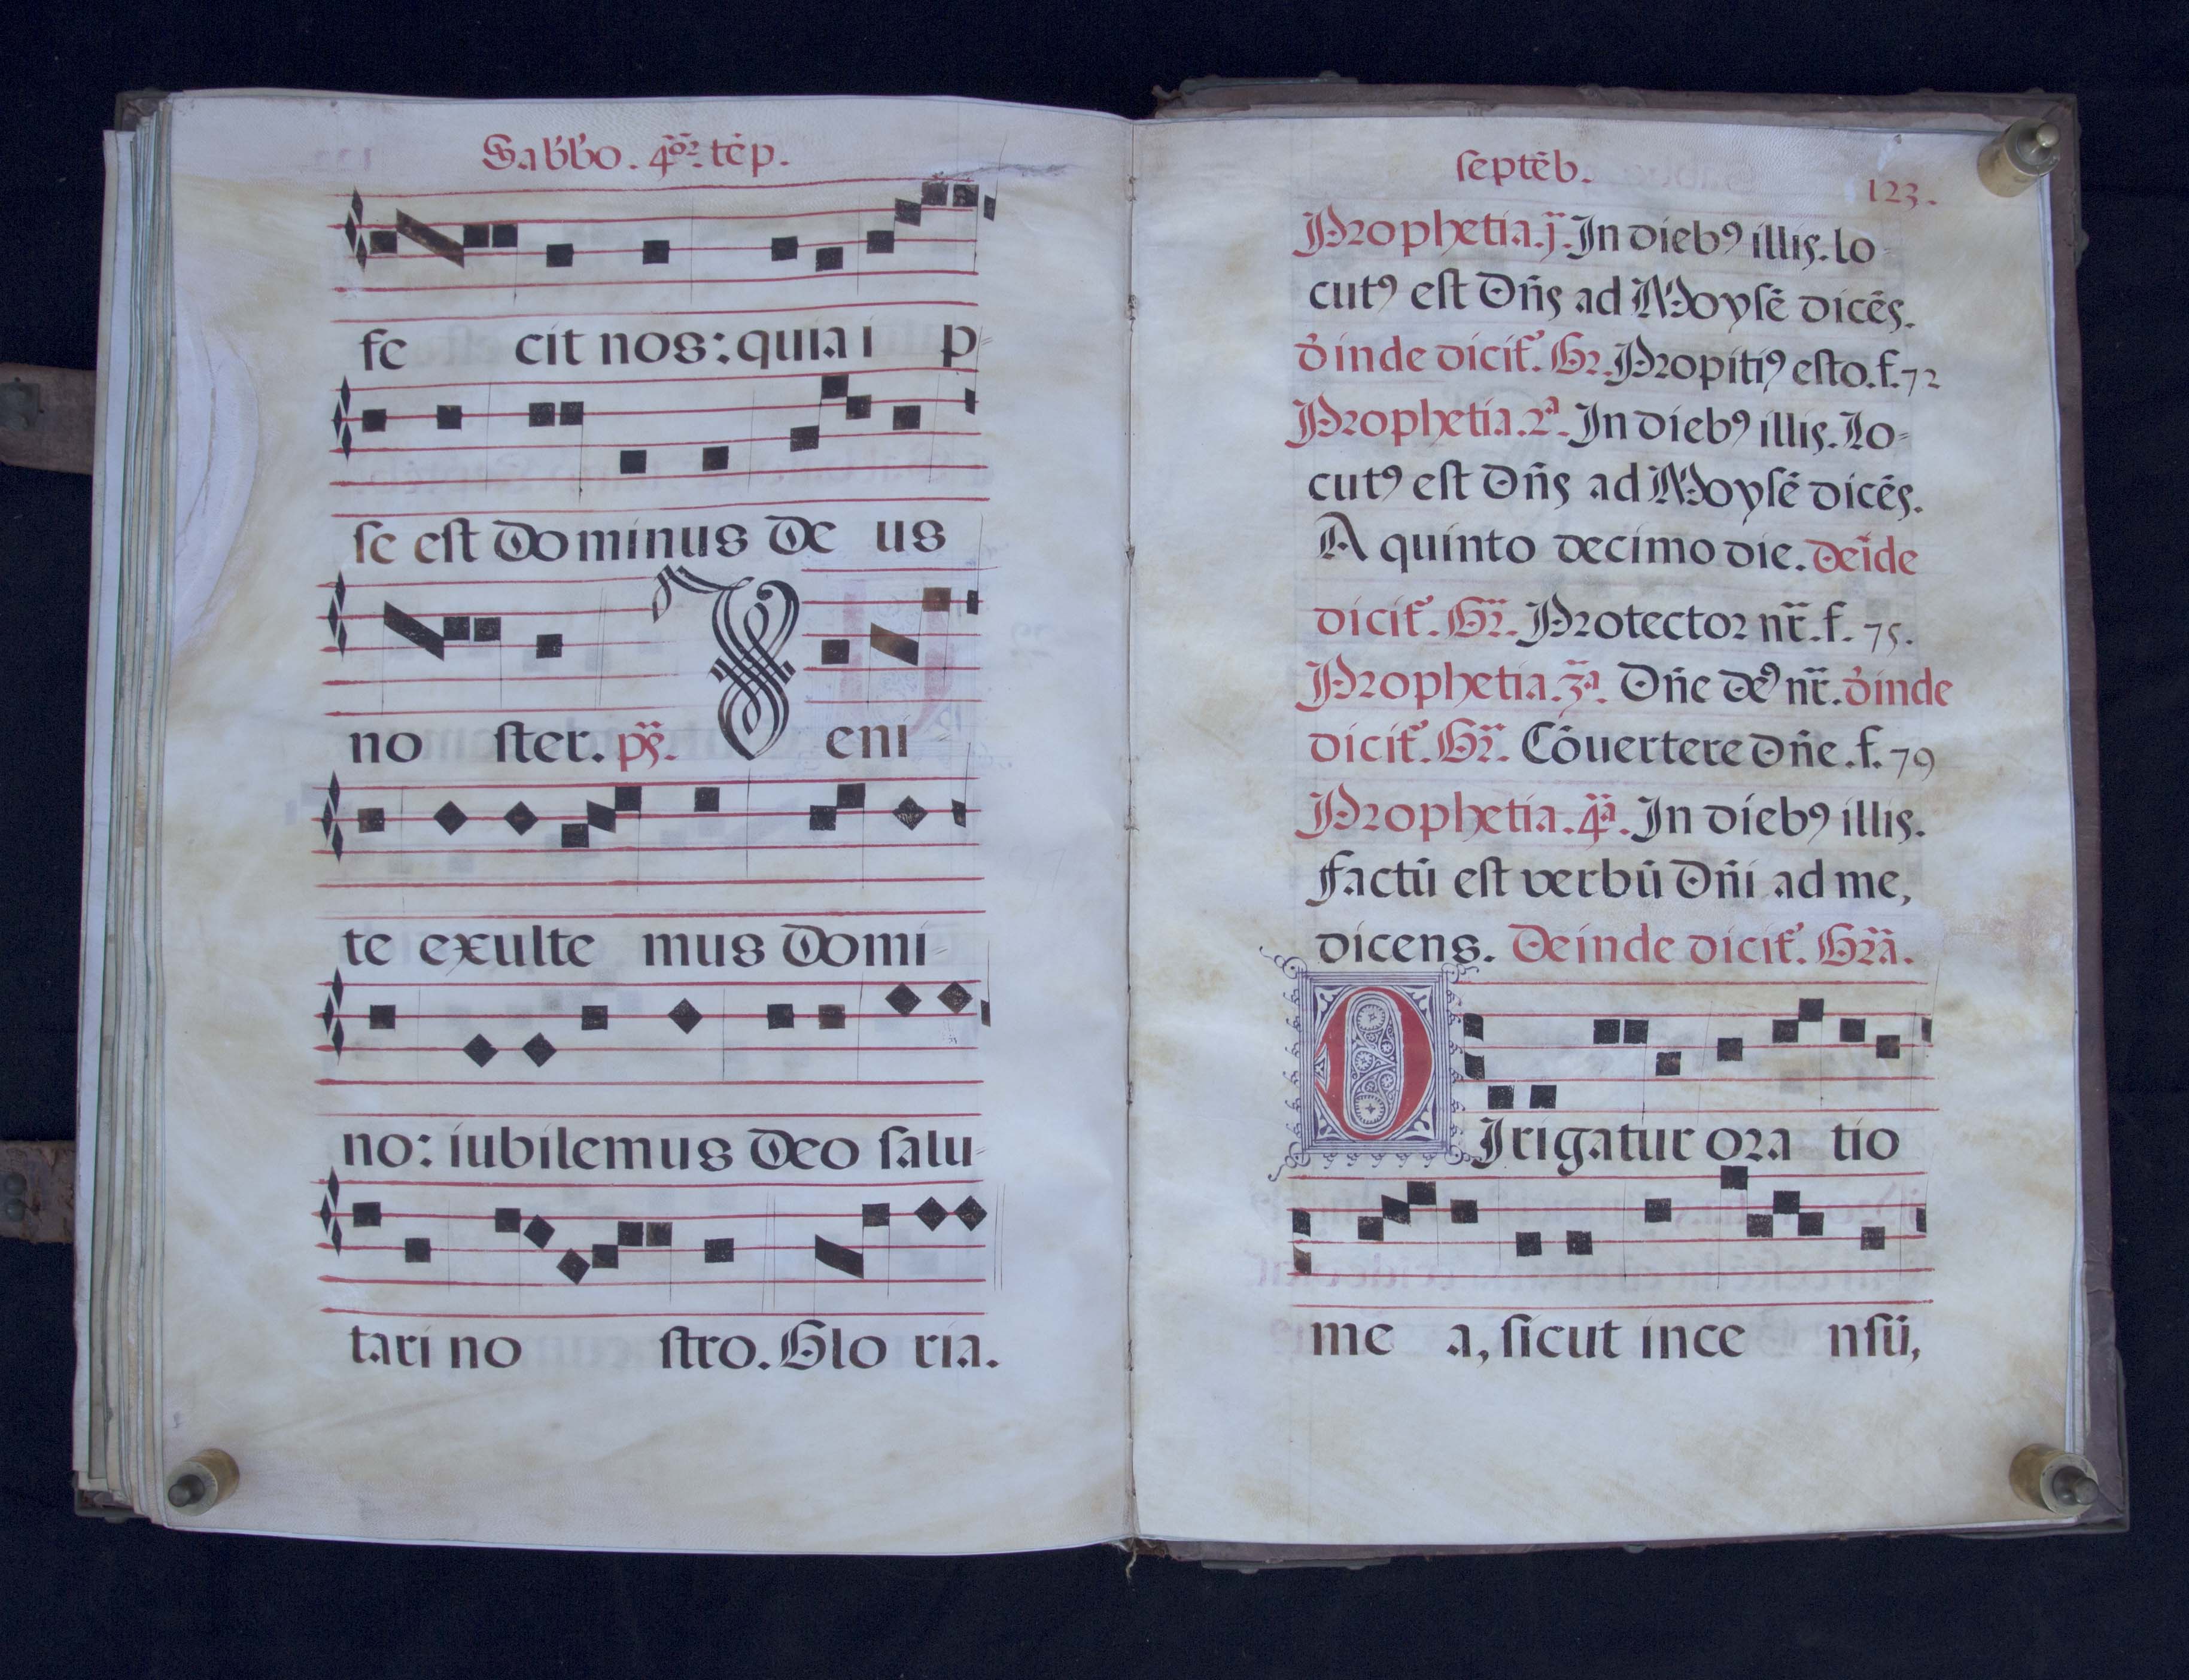 Sabbo. 4or. tēp.
fe cit nos: quia i p-
se est Dominus De us
no ster. ps. V eni-
te exulte mus Domi-
no: iubilemus Deo salu-
tari no stro. Glo ria.
septēb.
123.
Prophetia. j. In diebꝯ illis. lo-
cutꝯ est Dñs ad Moysē dicēs.
d̓inde dicit̃. Gr. Propitiꝯ esto. f. 72
Prophetia. 2ª. In diebꝯ illis. Lo-
cutꝯ est Dñs ad Moysē dicēs.
A quinto decimo die. deīde
dicit̃. Gr̃. Protector nr̃. f. 75.
Prophetia. 3ª. Dñe deꝯ nr̃. d̓inde
dicit̃. Gr̃. Cōuertere Dñe. f. 79
Prophetia. 4ª. In diebꝯ illis.
factū est verbū Dñi ad me,
dicens. Deinde dicit̃. Grã.
DIrigatur ora tio
me a, sicut ince nsū,